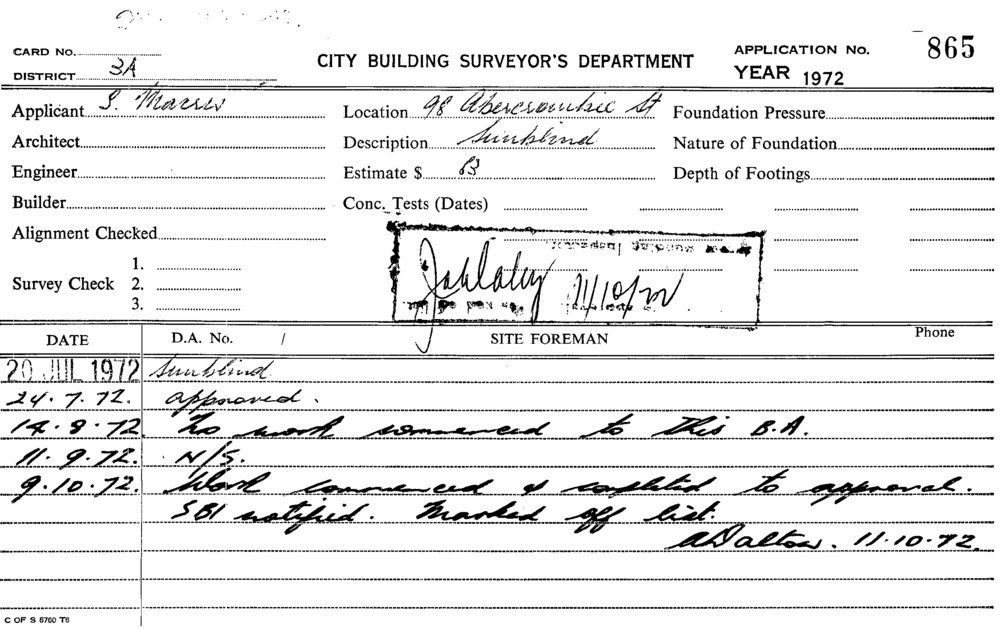 CARD No.
DISTRICT 3A
CITY BUILDING SURVEYOR'S DEPARTMENT
APPLICATION No. 865
YEAR 1972
Applicant S. Location 98 Abercrombie St Foundation Pressure
Architect Description Sunblind Nature of Foundation
Engineer Estimate $ Depth of Footings
Builder Conc. Tests (Dates)
Alignment Checked
Survey Check 1.
2.
3.
DATE D.A. No. / SITE FOREMAN Phone
20 JUL 1972 Sunblind
24.7.72. approved.
14.8.72. No work commenced to this B.A.
11.9.72. N/S.
9.10.72. Work commenced & completed to approval.
SBI notified. Marked off list.
ADalton. 11.10.72.
C OF S 6760 T6